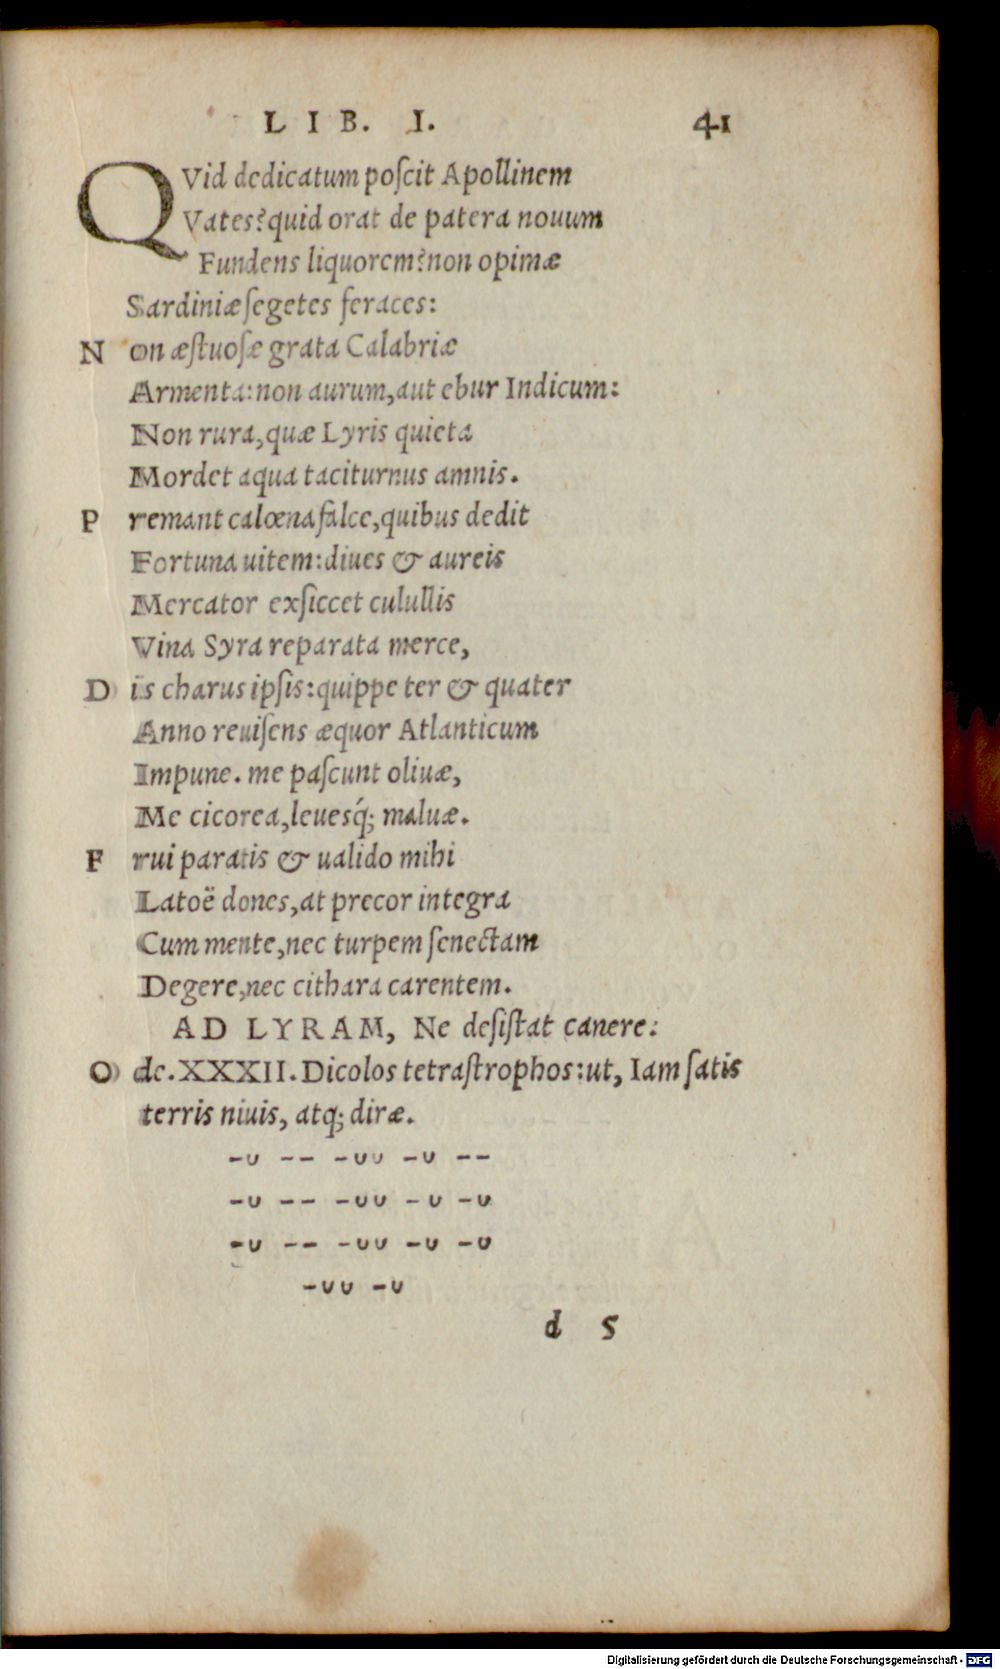 LIB. I. 41
QVid dedicatum poſcit Apollinem
Vates? quid orat de patera nouum
Fundens liquorem? non opimæ
Sardiniæ ſegetes feraces:
N on æſtuoſæ grata Calabriæ
Armenta: non aurum, aut ebur Indicum:
Non rura, quæ Lyris quieta
Mordet aqua taciturnus amnis.
P remant calœna falce, quibus dedit
Fortuna uitem: diues & aureis
Mercator exſiccet culullis
Vina Syra reparata merce,
D is charus ipſis: quippe ter & quater
Anno reuiſens æquor Atlanticum
Impune. me paſcunt oliuæ,
Me cicorea, leuesq́; maluæ.
F rui paratis & ualido mihi
Latoë dones, at precor integra
Cum mente, nec turpem ſenectam
Degere, nec cithara carentem.
AD LYRAM, Ne deſiſtat canere.
O de. XXXII. Dicolos tetraſtrophos: ut, Iam ſatis
terris niuis, atq; diræ.
-υ -- -υυ -υ --
-υ -- -υυ -υ -υ
-υ -- -υυ -υ -υ
-υυ -υ
d 5
Digitalisierung gefördert durch die Deutsche Forschungsgemeinschaft - DFG